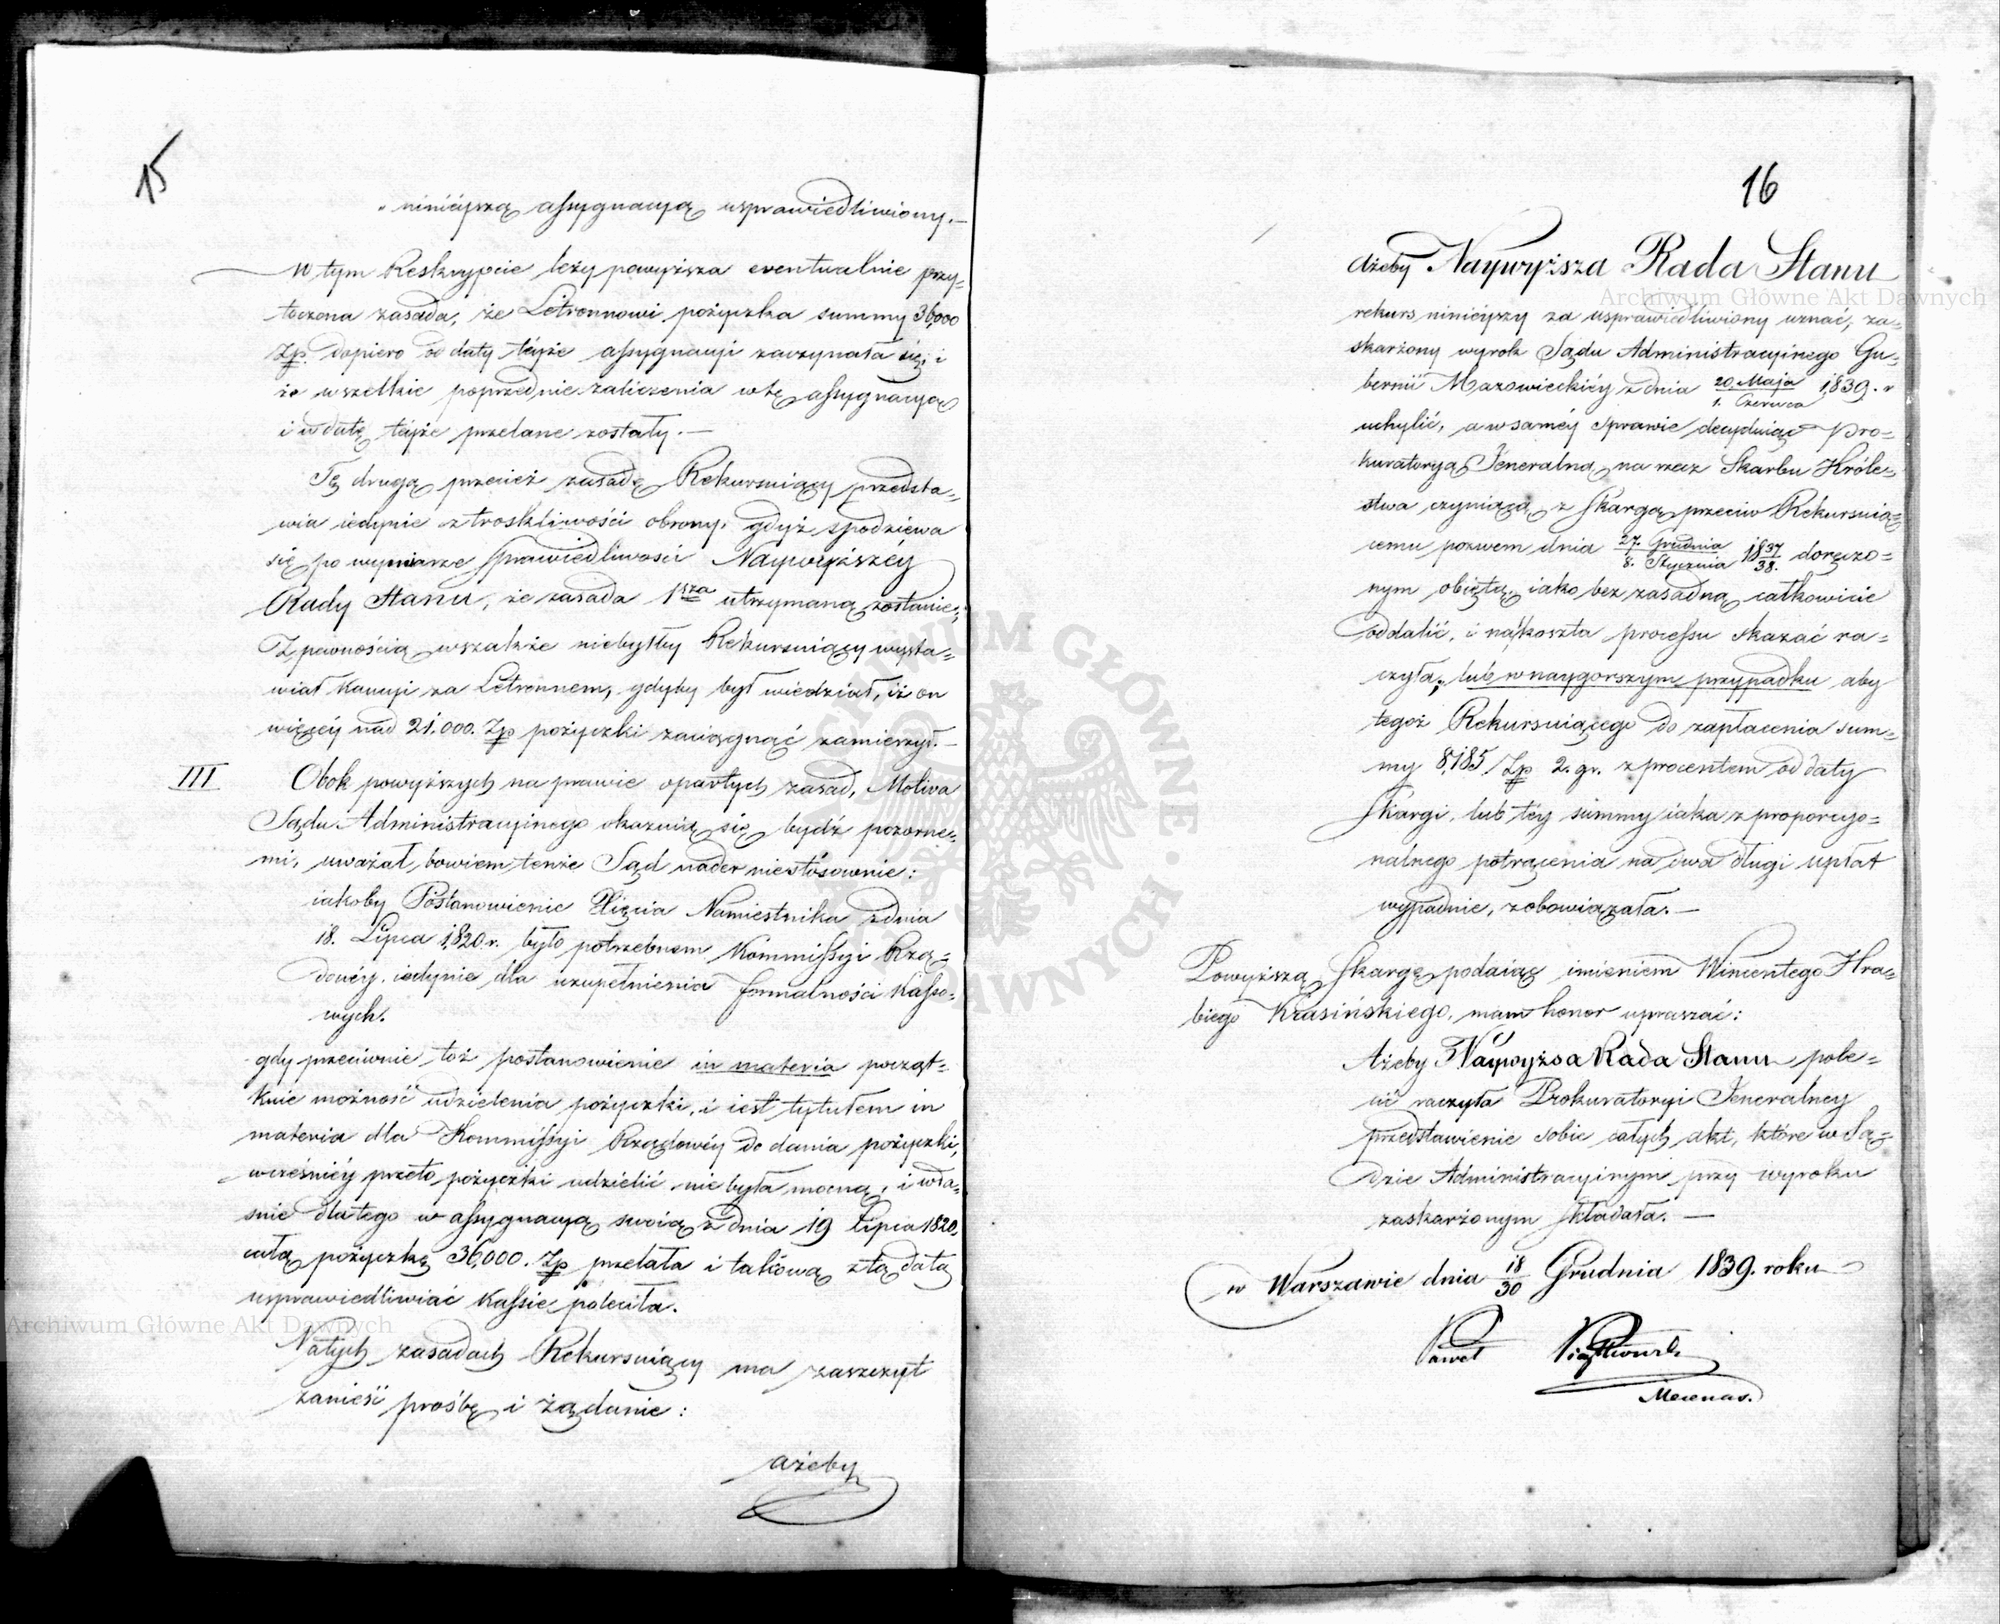 15
„ ninieyszą assygnacyą usprawiedliwiony. —
W tym Reskrypcie leży powyższa eventualnie przy-
toczona zasada, że Letronnowi pożyczka summy 36,000
Zp. dopiero od daty téyże assygnacyi zaczynała się, i
że wszelkie poprzednie zaliczenia w tę assygnacyą
i w datę téyże przelane zostały. —
Tę drugą przecież zasadę Rekursuiący przedsta-
wia iedynie z troskliwości obrony, gdyż spodziewa
się po wymiarze sprawiedliwości Naywyższéy
Rady Stanu, że zasada 1sza utrzymaną zostanie.
Z pewnością wszakże niebyłby Rekursuiący wysta-
wiał kaucyi za Letronnem, gdyby był wiedział, iż on
więcéy nad 21.000. Zp pożyczki zaciągnąć zamierzył. —
III Obok powyższych na prawie opartych zasad, Motiva
Sądu Administracyinego okazuią się bydź pozorne-
mi, uważał bowiem tenże Sąd nader niestosownie:
iakoby Postanowienie Xięcia Namiestnika z dnia
18. Lipca 1820 r. było potrzebnem Kommissyi Rzą-
dowéy iedynie dla uzupełnienia formalności kasso-
wych.
gdy przeciwnie toż postanowienie in materia począt-
kuie możność udzielenia pożyczki, i iest tytułem in
materia dla Kommissyi Rządowéy do dania pożyczki,
wcześniéy przeto pożyczki udzielić nie była mocną, i wła-
śnie dlatego w assygnacyą swoią z dnia 19 Lipca 1820.
całą pożyczkę 36,000. Zp przelała i takową z tą datą
usprawiedliwiać Kassie poleciła.
Na tych zasadach Rekursuiący ma zaszczyt
zanieść prośbę i żądanie:
ażeby
16
ażeby Naywyższa Rada Stanu
rekurs ninieyszy za usprawiedliwiony uznać, za-
skarżony wyrok Sądu Administracyinego Gu-
bernii Mazowieckiéy z dnia 20. Maja / 1. Czerwca 1839. r
uchylić, a w saméy sprawie decyduiąc Pro-
kuratoryą Jeneralną na rzecz Skarbu Króle-
stwa czyniącą z skargą przeciw Rekursuią-
cemu pozwem dnia 27. Grudnia / 8. Stycznia 18 37/38. doręczo-
nym obiętą, iako bezzasadną całkowicie
oddalić, i na koszta processu skazać ra-
czyła; lub w naygorszym przypadku aby
tegoż Rekursuiącego do zapłacenia sum-
my 8,185. Zp 2. gr. z procentem od daty
skargi, lub téy summy iaka z proporcyo-
nalnego potrącenia na dwa długi upłat
wypadnie, zobowiązała. —
Powyższą skargę podaiąc imieniem Wincentego Hra-
biego Krasińskiego, mam honor upraszać:
Ażeby Naywyższa Rada Stanu pole-
cić raczyła Prokuratoryi Jeneralney
przedstawienie sobie całych akt, które w Są-
dzie Administracyinym przy wyroku
zaskarżonym składała. —
w Warszawie dnia 18/30 Grudnia 1839. roku
Paweł
Mecenas.
Archiwum Główne Akt Dawnych
Archiwum Główne Akt Dawnych
ARCHIWUM GŁÓWNE AKT DAWNYCH